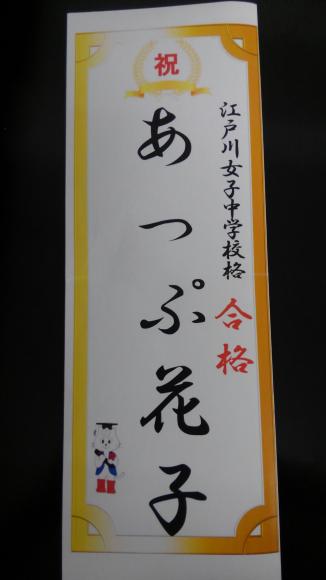 祝
江戸川女子中学校格 合格
あっぷ花子